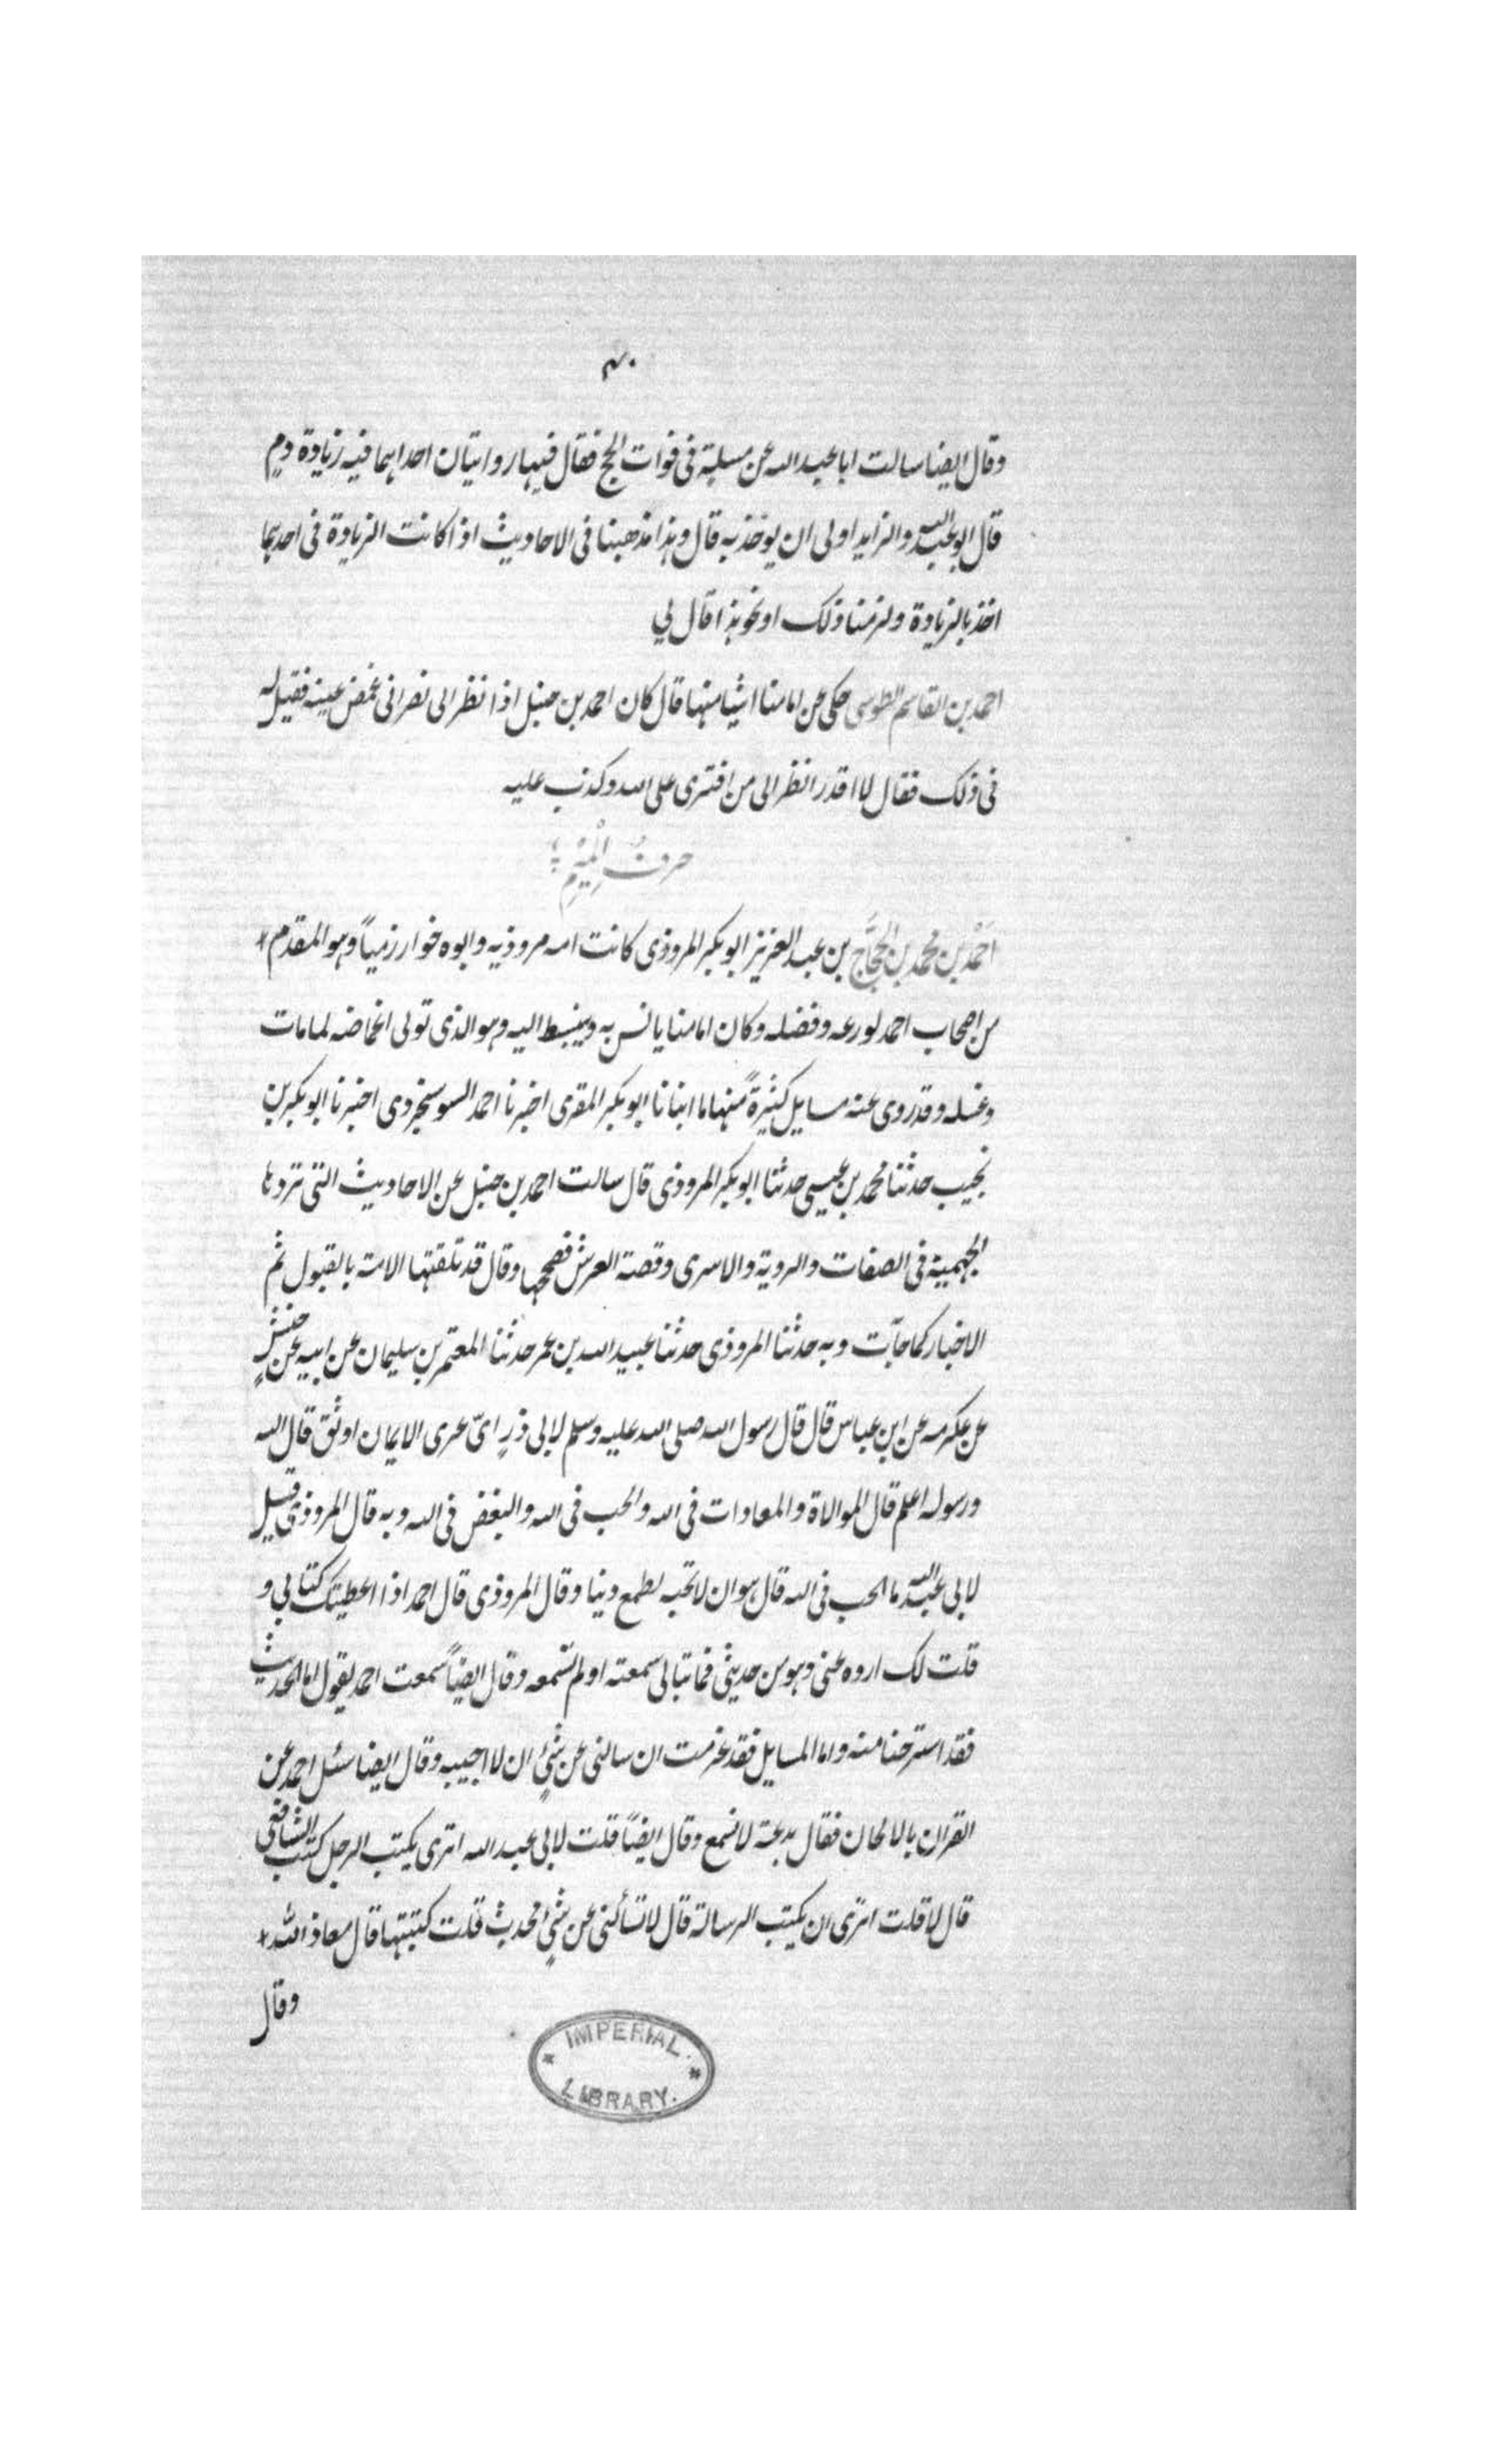 ۴۰
وقال ايضا سالت ابا عبد الله عن مسلية فى فوات الحج فقال فيها روايتان احداهما فيه زيادة دم
قال ابو عبد الله والزايد اولى ان يوخذ به قال وهذا مذهبنا فى الاحاديث اذا كانت الزيادة فى احديهما
اخذ بالزيادة ولزمنا ذلك او نحو هذا قال لي
احمد بن القاسم الطوسى حكى عن امامنا اشيا منها قال كان احمد بن حنبل اذا نظر الى نصرانى غمض عينه فقيل له
فى ذلك فقال لا اقدر انظر الى من افترى على الله وكذب عليه
حرفُ الْمِيْمِ
اَحْمَد بن محمد بن الحجَّاج بن عبد العزيز ابو بكر المروذى كانت امه مروذيه وابوه خوارزمياً وهو المقدم
من اصحاب احمد لورعه وفضله وكان امامنا يانس به وينبسط اليه وهو الذى تولى اغماضه لما مات
وغسله وقد روى عنه مسايل كثيرةً منها ما انبانا ابو بكر المقرى اخبرنا احمد السوسنجردى اخبرنا ابو بكر بن
نجيب حدثنا محمد بن عيسى حدثنا ابو بكر المروذى قال سالت احمد بن حنبل عن الاحاديث التى تردها
الجهمية فى الصفات والروية والاسرى وقصة العرش فصححها وقال قد تلقتها الامة بالقبول ثم
الاخبار كما جآت وبه حدثنا المروذى حدثنا عبيد الله بن عمر حدثنا المعتمر بن سليمان عن ابيه عن حنش
عن عكرمه عن ابن عباس قال قال رسول الله صلى الله عليه وسلم لابى ذرٍ اىّ عرى الايمان اوثق قال الله
ورسوله اعلم قال الموالاة والمعادات فى الله والحب فى الله والبغض فى الله وبه قال المروذى قيل
لابى عبد الله ما الحب فى الله قال هو ان لا تحبه لطمع دنيا وقال المروذى قال احمد اذا اعطيتك كتابي و
قلت لك اروه عنى وهو من حديثى فما تبالى سمعته او لم تسمعه وقال ايضاً سمعت احمد يقول اما الحديث
فقد استرحنا منه واما المسايل فقد عزمت ان سالنى عن شئٍ ان لا اجيبه وقال ايضا سئل احمد عن
القران بالالحان فقال بدعة لا تسمع وقال ايضاً قلت لابى عبد الله اترى يكتب الرجل كتب الشافعى
قال لا قلت اترى ان يكتب الرسالة قال لا تسألنى عن شئٍ محدث قلت كتبتها قال معاذ الله
وقال
IMPERIAL
LIBRARY.